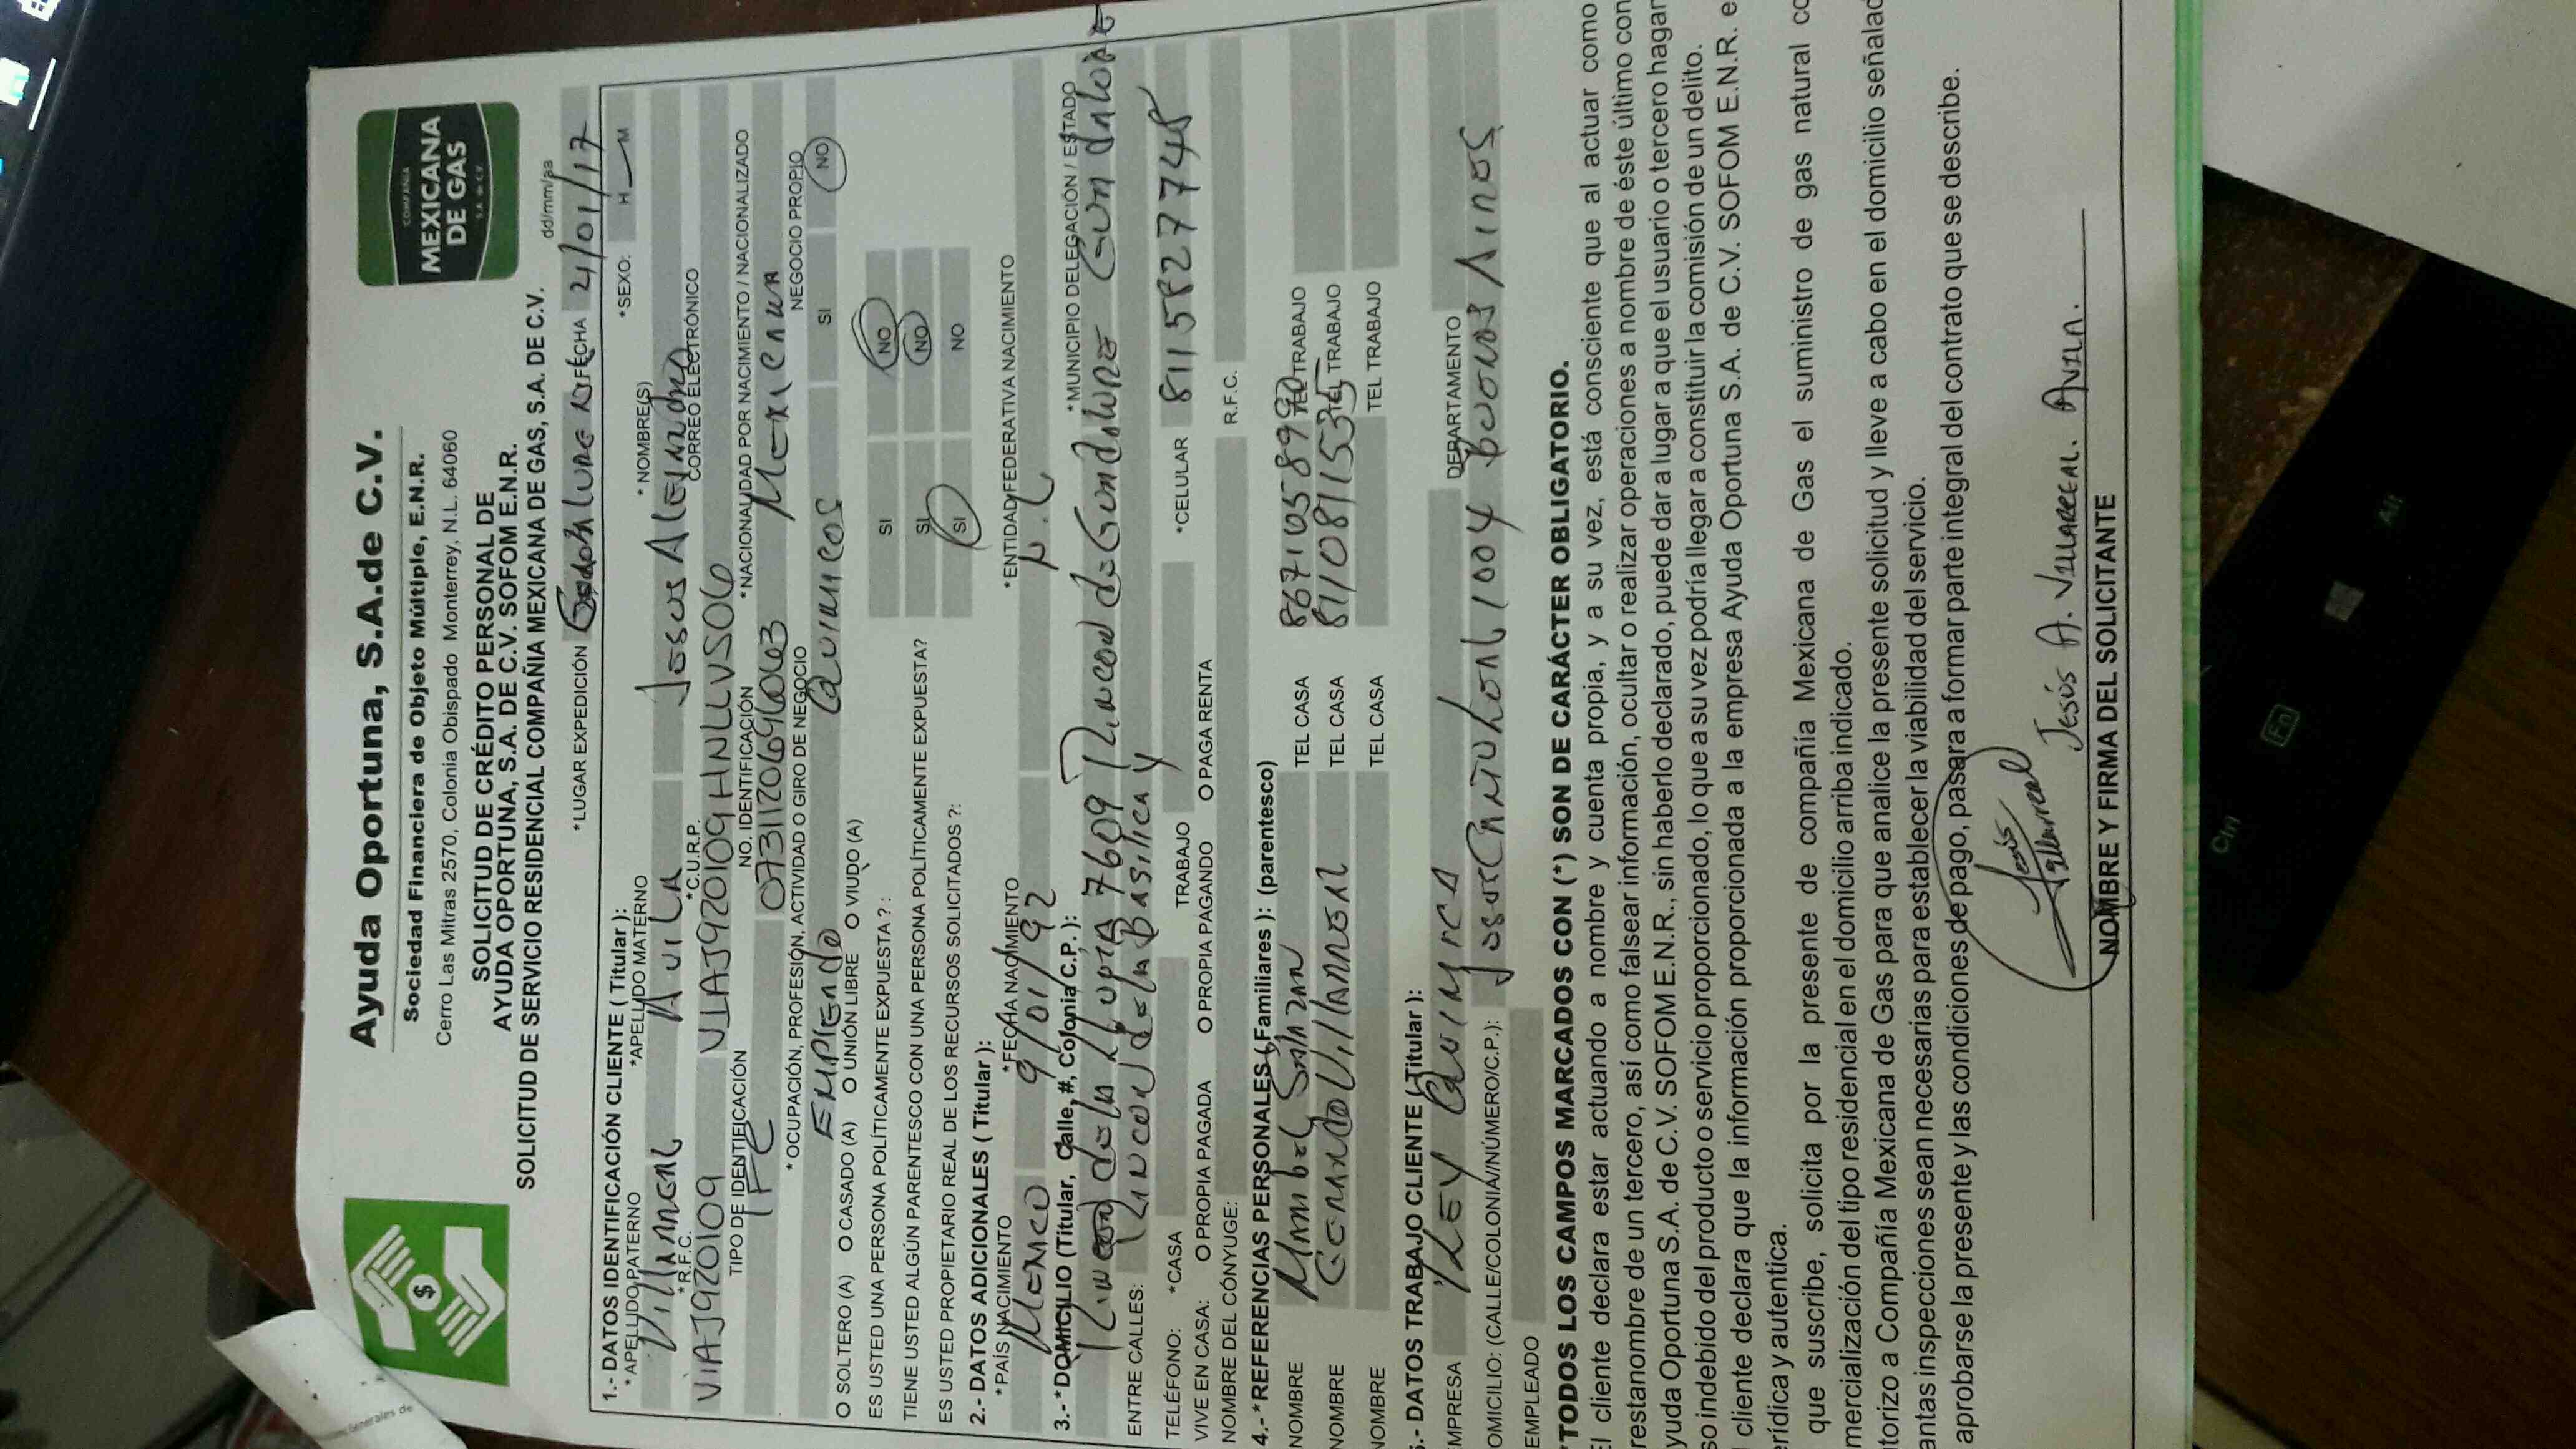 Ayuda Oportuna, S.A.de C.V.
Sociedad Financiera de Objeto Múltiple, E.N.R.
Cerro Las Mitras 2570, Colonia Obispado Monterrey, N.L. 64060
COMPAÑIA
MEXICANA
DE GAS
S.A. de C.V.
SOLICITUD DE CRÉDITO PERSONAL DE
AYUDA OPORTUNA, S.A. DE C.V. SOFOM E.N.R.
SOLICITUD DE SERVICIO RESIDENCIAL COMPAÑIA MEXICANA DE GAS, S.A. DE C.V.
dd/mm/aa
*LUGAR EXPEDICIÓN Guadalupe FECHA 21/01/17
1.- DATOS IDENTIFICACIÓN CLIENTE ( Titular ):
*APELLIDO PATERNO *APELLIDO MATERNO *NOMBRE(S) *SEXO: H M
Villarreal Avila Jesus Alejandro
*R.F.C. *C.U.R.P. CORREO ELECTRÓNICO
VIAJ920109 VIAJ920109HNLLVS06
TIPO DE IDENTIFICACIÓN NO. IDENTIFICACIÓN *NACIONALIDAD POR NACIMIENTO / NACIONALIZADO
IFE Mexicana
*OCUPACIÓN, PROFESIÓN, ACTIVIDAD O GIRO DE NEGOCIO NEGOCIO PROPIO
Empleado Quimicos SI NO
O SOLTERO (A) O CASADO (A) O UNIÓN LIBRE O VIUDO (A)
ES USTED UNA PERSONA POLÍTICAMENTE EXPUESTA ? : SI NO
TIENE USTED ALGÚN PARENTESCO CON UNA PERSONA POLÍTICAMENTE EXPUESTA? SI NO
ES USTED PROPIETARIO REAL DE LOS RECURSOS SOLICITADOS ?: SI NO
2.- DATOS ADICIONALES ( Titular ):
*PAÍS NACIMIENTO *FECHA NACIMIENTO *ENTIDAD FEDERATIVA NACIMIENTO
Mexico 9/01/92 N.L
3.-*DOMICILIO (Titular, Calle, #, Colonia C.P. ): *MUNICIPIO DELEGACIÓN / ESTADO
Rincon de la 7609 Rincon de Guadalupe Guadalupe
ENTRE CALLES: Rincon de la Basilica y
TELÉFONO: *CASA TRABAJO *CELULAR 8115827748
VIVE EN CASA: O PROPIA PAGADA O PROPIA PAGANDO O PAGA RENTA
NOMBRE DEL CÓNYUGE: R.F.C.
4.-*REFERENCIAS PERSONALES (Familiares ): (parentesco)
NOMBRE TEL CASA 8671058990 TEL TRABAJO
NOMBRE Gerardo Villarreal TEL CASA 8110811535 TEL TRABAJO
NOMBRE TEL CASA TEL TRABAJO
.- DATOS TRABAJO CLIENTE ( Titular ):
MPRESA Rey Quimica DEPARTAMENTO
OMICILIO: (CALLE/COLONIA/NÚMERO/C.P.): Jose Cantu Leal 1004 Buenos Aires
EMPLEADO
*TODOS LOS CAMPOS MARCADOS CON (*) SON DE CARÁCTER OBLIGATORIO.
El cliente declara estar actuando a nombre y cuenta propia, y a su vez, está consciente que al actuar como
restanombre de un tercero, así como falsear información, ocultar o realizar operaciones a nombre de éste último con
yuda Oportuna S.A. de C.V. SOFOM E.N.R., sin haberlo declarado, puede dar a lugar a que el usuario o tercero hagan
so indebido del producto o servicio proporcionado, lo que a su vez podría llegar a constituir la comisión de un delito.
l cliente declara que la información proporcionada a la empresa Ayuda Oportuna S.A. de C.V. SOFOM E.N.R. e
erídica y autentica.
que suscribe, solicita por la presente de compañía Mexicana de Gas el suministro de gas natural co
mercialización del tipo residencial en el domicilio arriba indicado.
torizo a Compañía Mexicana de Gas para que analice la presente solicitud y lleve a cabo en el domicilio señalad
antas inspecciones sean necesarias para establecer la viabilidad del servicio.
aprobarse la presente y las condiciones de pago, pasara a formar parte integral del contrato que se describe.
Jesús Villarreal
Jesús A. Villarreal Avila.
NOMBRE Y FIRMA DEL SOLICITANTE
Ctrl
Fn
Alt